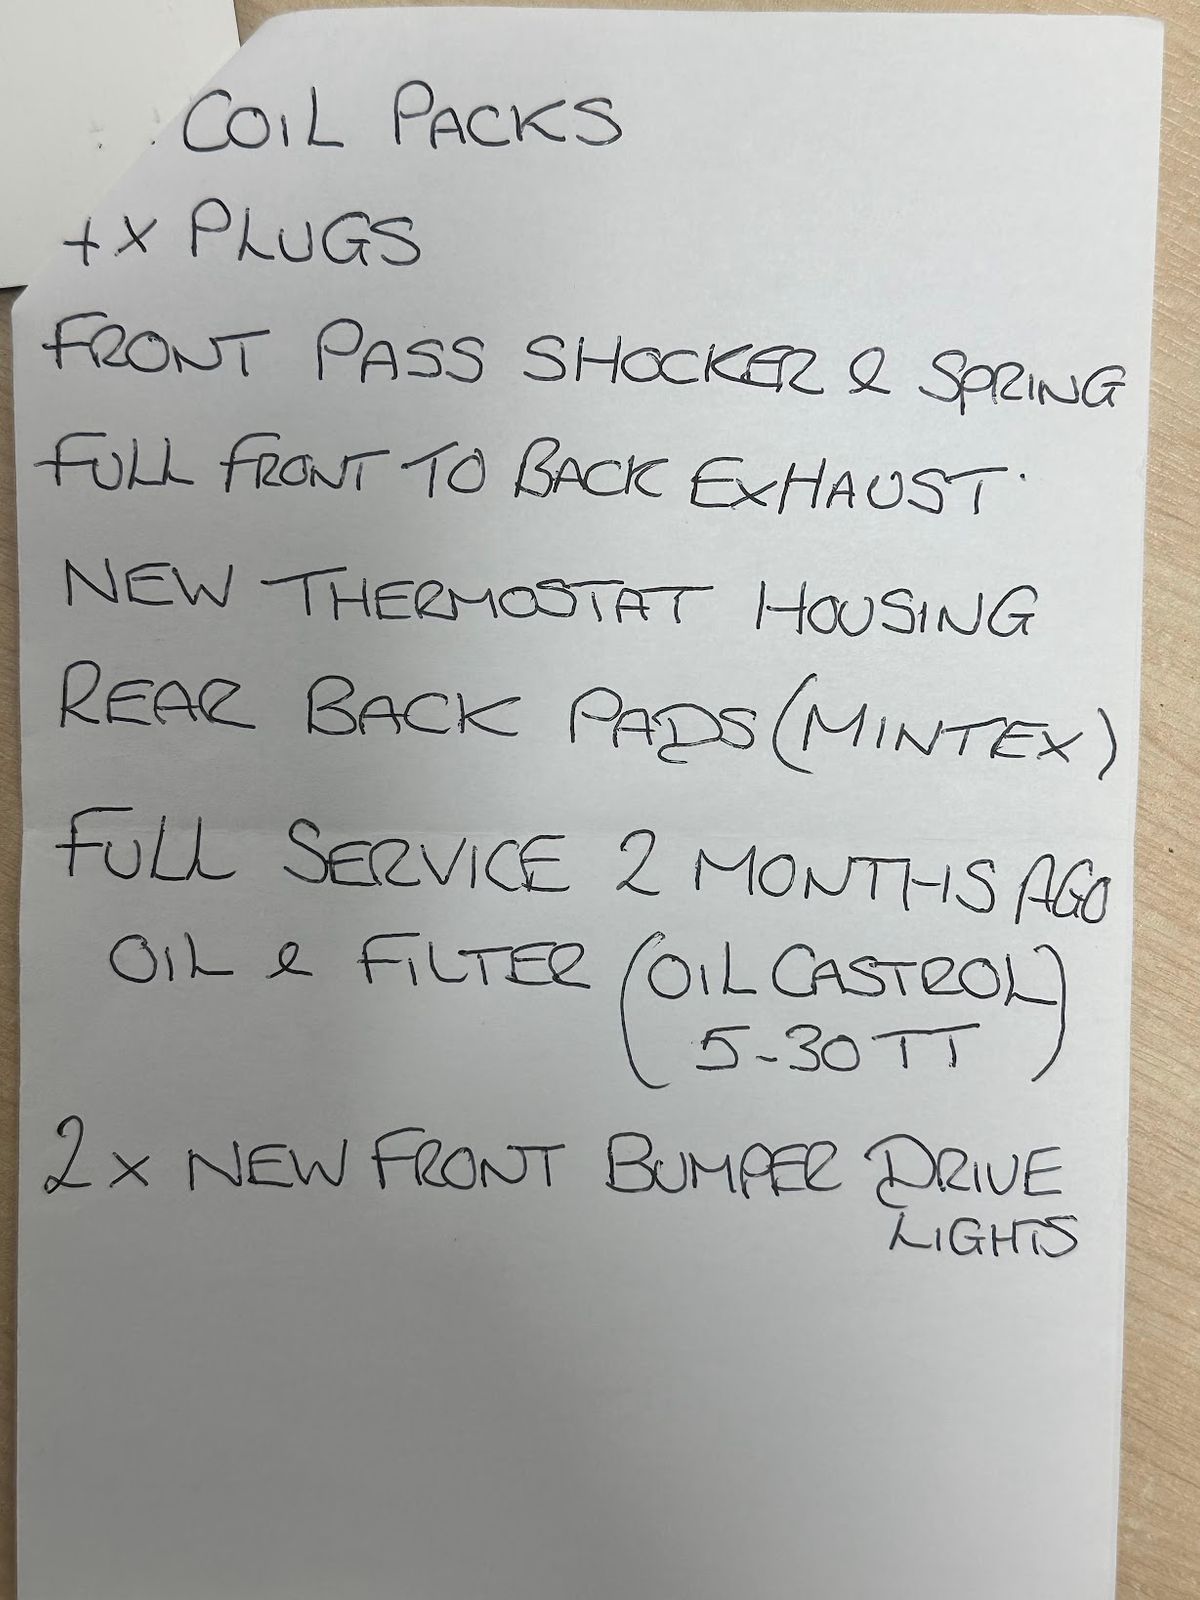 COIL PACKS
X PLUGS
FRONT PASS SHOCKER & SPRING
FULL FRONT TO BACK EXHAUST.
NEW THERMOSTAT HOUSING
REAR BACK PADS (MINTEX)
FULL SERVICE 2 MONTHS AGO
OIL & FILTER (OIL CASTROL)
5-30 TT
2 X NEW FRONT BUMPER DRIVE
LIGHTS